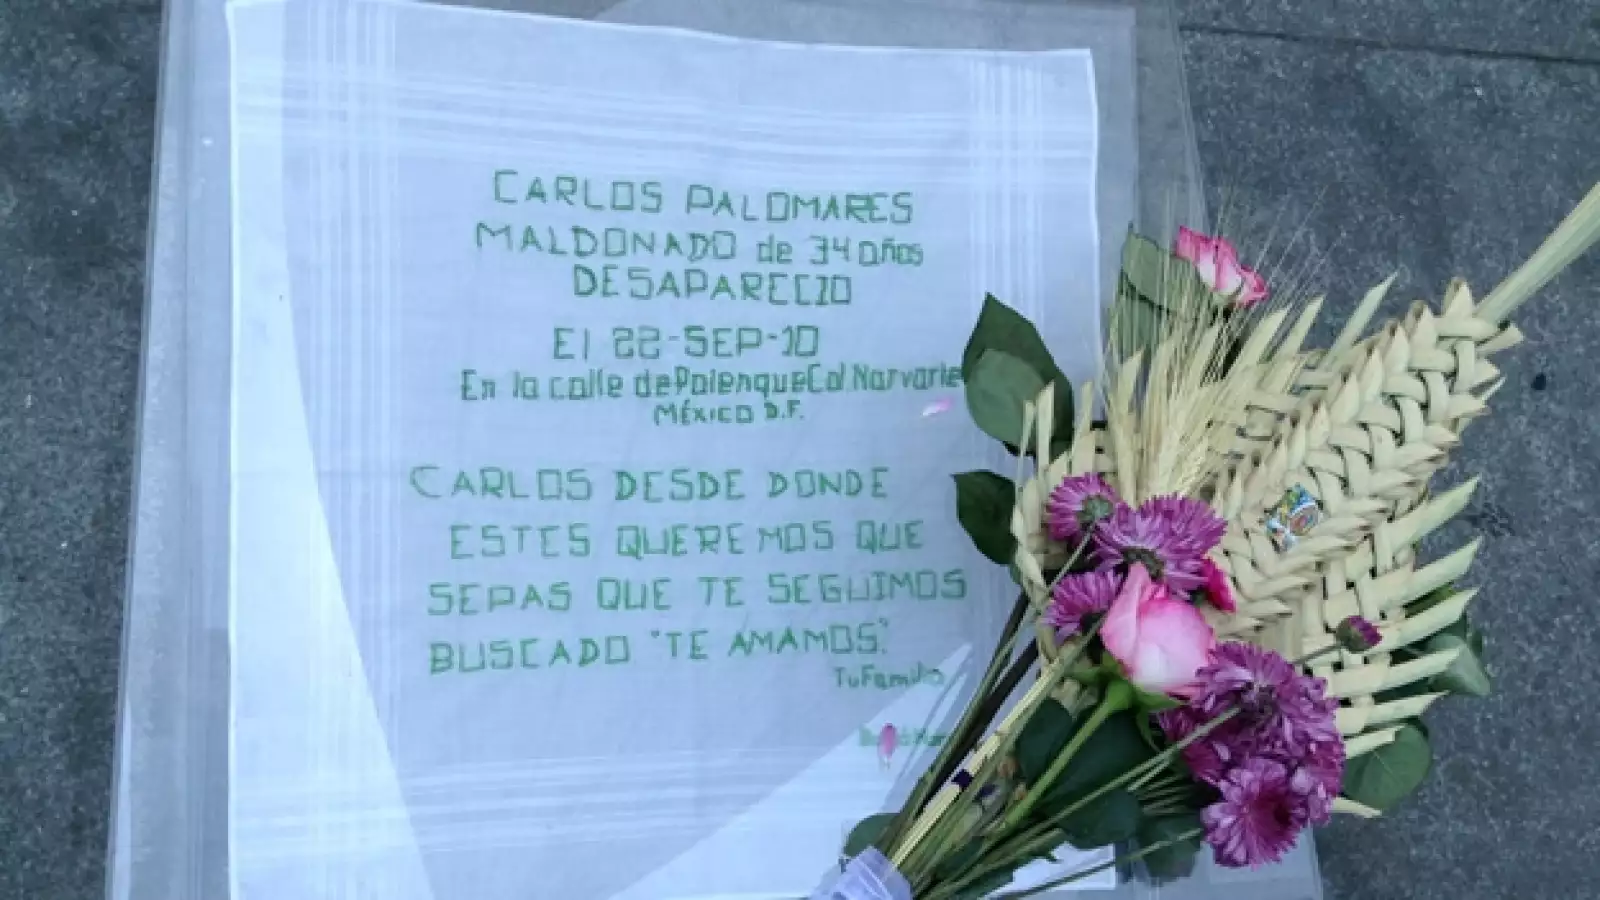 CARLOS PALOMARES
MALDONADO de 34 años
DESAPARECIO
El 22-SEP-10
En la calle de Palenque Col Narvarte
MÉXICO D.F.
CARLOS DESDE DONDE
ESTES QUEREMOS QUE
SEPAS QUE TE SEGUIMOS
BUSCADO "TE AMAMOS".
Tu Familia